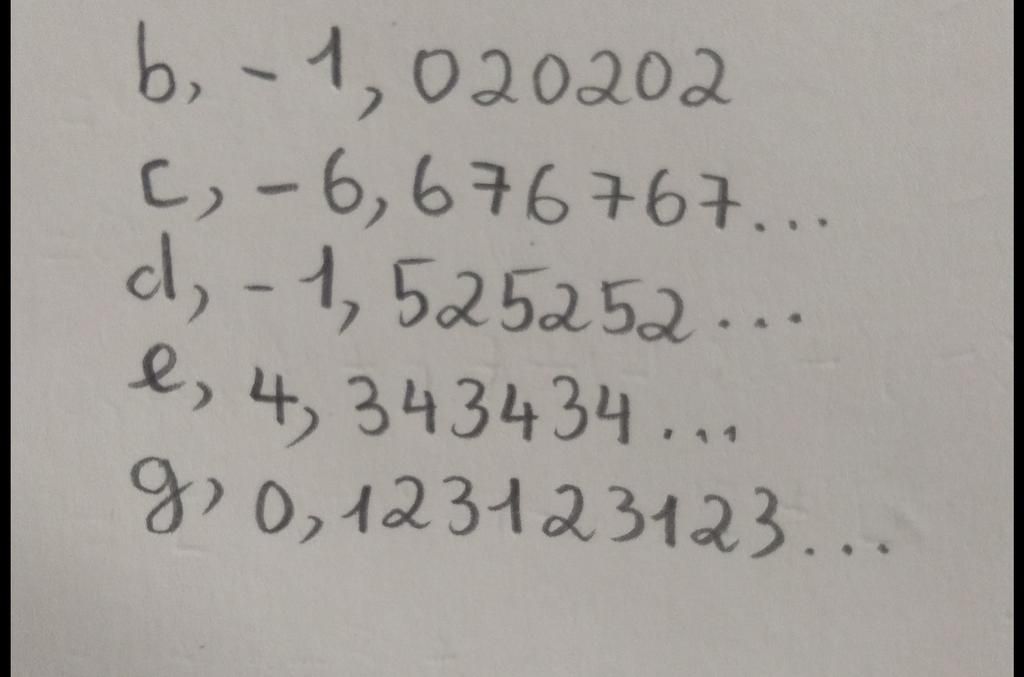 b, -1,020202
c, -6,676767...
d, -1,525252...
e, 4,343434...
g, 0,123123123...